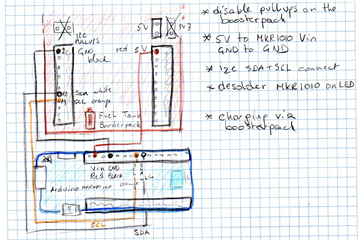 i2c
PULLUPS
GND
black
SDA white
SCL orange
Fuel Tank
Boosterpack
5V
3V3
red 5V
Vin GND
Red Black
Arduino
SCL
SDA
* disable pullups on the
boosterpack!
* 5V to MKR1010 Vin
GND to GND
* i2c SDA+SCL connect
* desolder MKR1010 on LED
* charging via
boosterpack